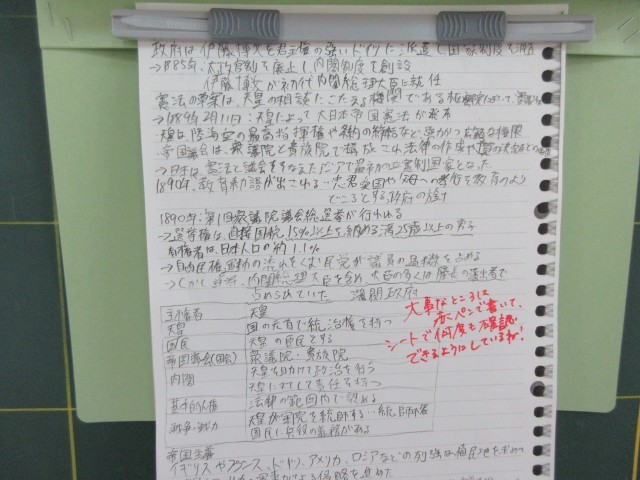 政府は伊藤博文を君主権の強いドイツに派遣し国家制度を
→1885年、太政官制を廃止し内閣制度を創設
伊藤博文が初代内閣総理大臣に就任
憲法の草案は、天皇の相談にこたえる機関である枢密院
→1889年2月11日:天皇によって大日本帝国憲法が発布
天皇は陸海軍の最高指揮権や条約の締結など
帝国議会は、衆議院と貴族院で構成され法律の作成や
→日本は憲法と議会をそなえたアジアで最初の立憲制国家となった
1890年、教育勅語が出される…忠君愛国や父母への孝行を教育のより
どころとする政府の
1890年:第1回衆議院議会総選挙が行われる
→選挙権は直接国税15円以上を納める満25歳以上の男子
有権者は日本人口の約1.1%
→自由民権運動の流れをくむ民党が議員の過半数を占める
→しかし 内閣総理大臣を含め大臣の多くは藩長の
占められていた 藩閥政府
主権者 天皇
天皇 国の元首で統治権を持つ
国民 天皇の臣民とする
帝国議会(国会) 衆議院・貴族院
内閣 天皇を助けて政治を行う
天皇に対して責任を持つ
基本的人権 法律の範囲内で認める
戦争・戦力 天皇が軍隊を統帥する…統帥権
国民に兵役の義務がある
大事なところは
赤ペンで書いて、
シートで何度も確認
できるようにしているね!
帝国主義
イギリスやフランス、ドイツ、アメリカ、ロシアなどの列強は植民地を求めて